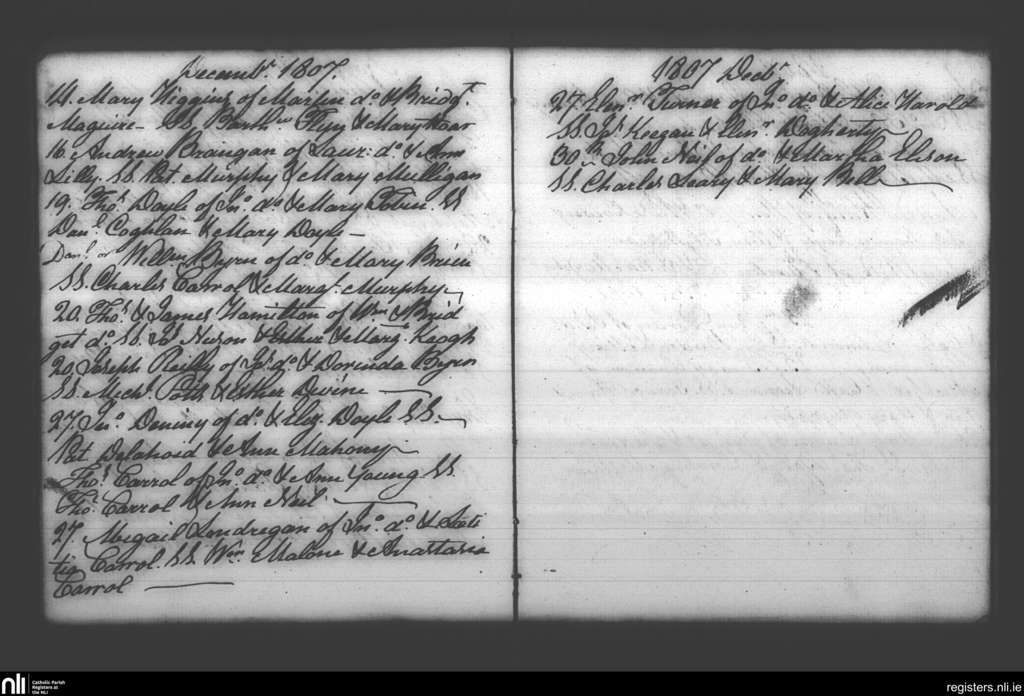 Decembr. 1807.
14. Mary Higgins of Martin do. & Bridgt.
Maguire – SS. Barthw. Flyn & Mary Hoar
16. Andrew Brangan of Laur: do. & Ann
Lilly. SS. Pat. Murphy & Mary Mulligan
19. Thos. Doyle of Jno. do. & Mary Tobin. SS
Danl. Coghlan & Mary Doyle –
Danl. or Willm Byrn of do. & Mary Brien
SS. Charles Carrol & Margt. Murphy –
20. Thos. & James Hamilton of Wm. & Brid
get do. SS. Js. & Esther & Margt. Keogh
20. Joseph Reilly of Js. do. & Dorinda Byrn
SS. Michl. Potts & Esther Divine –
27. Jno. Deniny of do. & Eliz. Doyle SS. –
Pat Delahoid & Ann Mahony –
Thos. Carrol of Jno. do. & Ann Young SS
Thos. Carrol & Ann Neil –
27. Abigail Londregan of Jno. do. & Stati
tia Carrol. SS. Wm. Malone & Anastasia
Carrol –
1807 Decbr.
27. Elinr. Turner of Jno. do. & Alice Harold
SS. Js. Keegan & Elinr. Dogherty –
30. John Neil of do. & Martha Elison
SS. Charles Leary & Mary Bell –
nli
Catholic Parish
Registers at
the NLI
registers.nli.ie